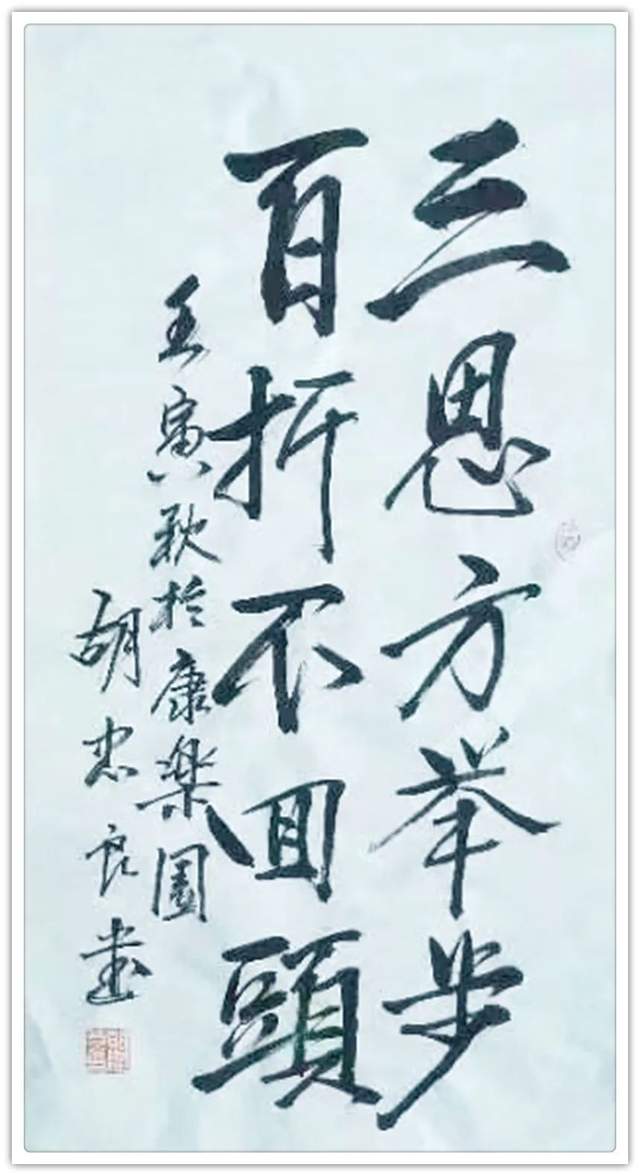 三思方举步
百折不回頭
壬寅秋於康樂園
胡忠良書